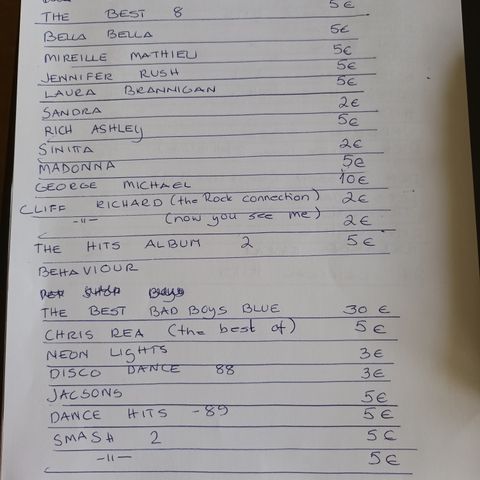 THE BEST 8 5€
BELLA BELLA 5€
MIREILLE MATHIEU 5€
JENNIFER RUSH 5€
LAURA BRANNIGAN 5€
SANDRA 2€
RICH ASHLEY 5€
SINITTA 2€
MADONNA 5€
GEORGE MICHAEL 10€
CLIFF RICHARD (the Rock connection) 2€
-11- (now you see me) 2€
THE HITS ALBUM 2 5€
BEHAVIOUR
PET SHOP Boys
THE BEST BAD BOYS BLUE 30€
CHRIS REA (the best of) 5€
NEON LIGHTS 3€
DISCO DANCE 88 3€
JACSONS 5€
DANCE HITS -89 5€
SMASH 2 5€
-11- 5€